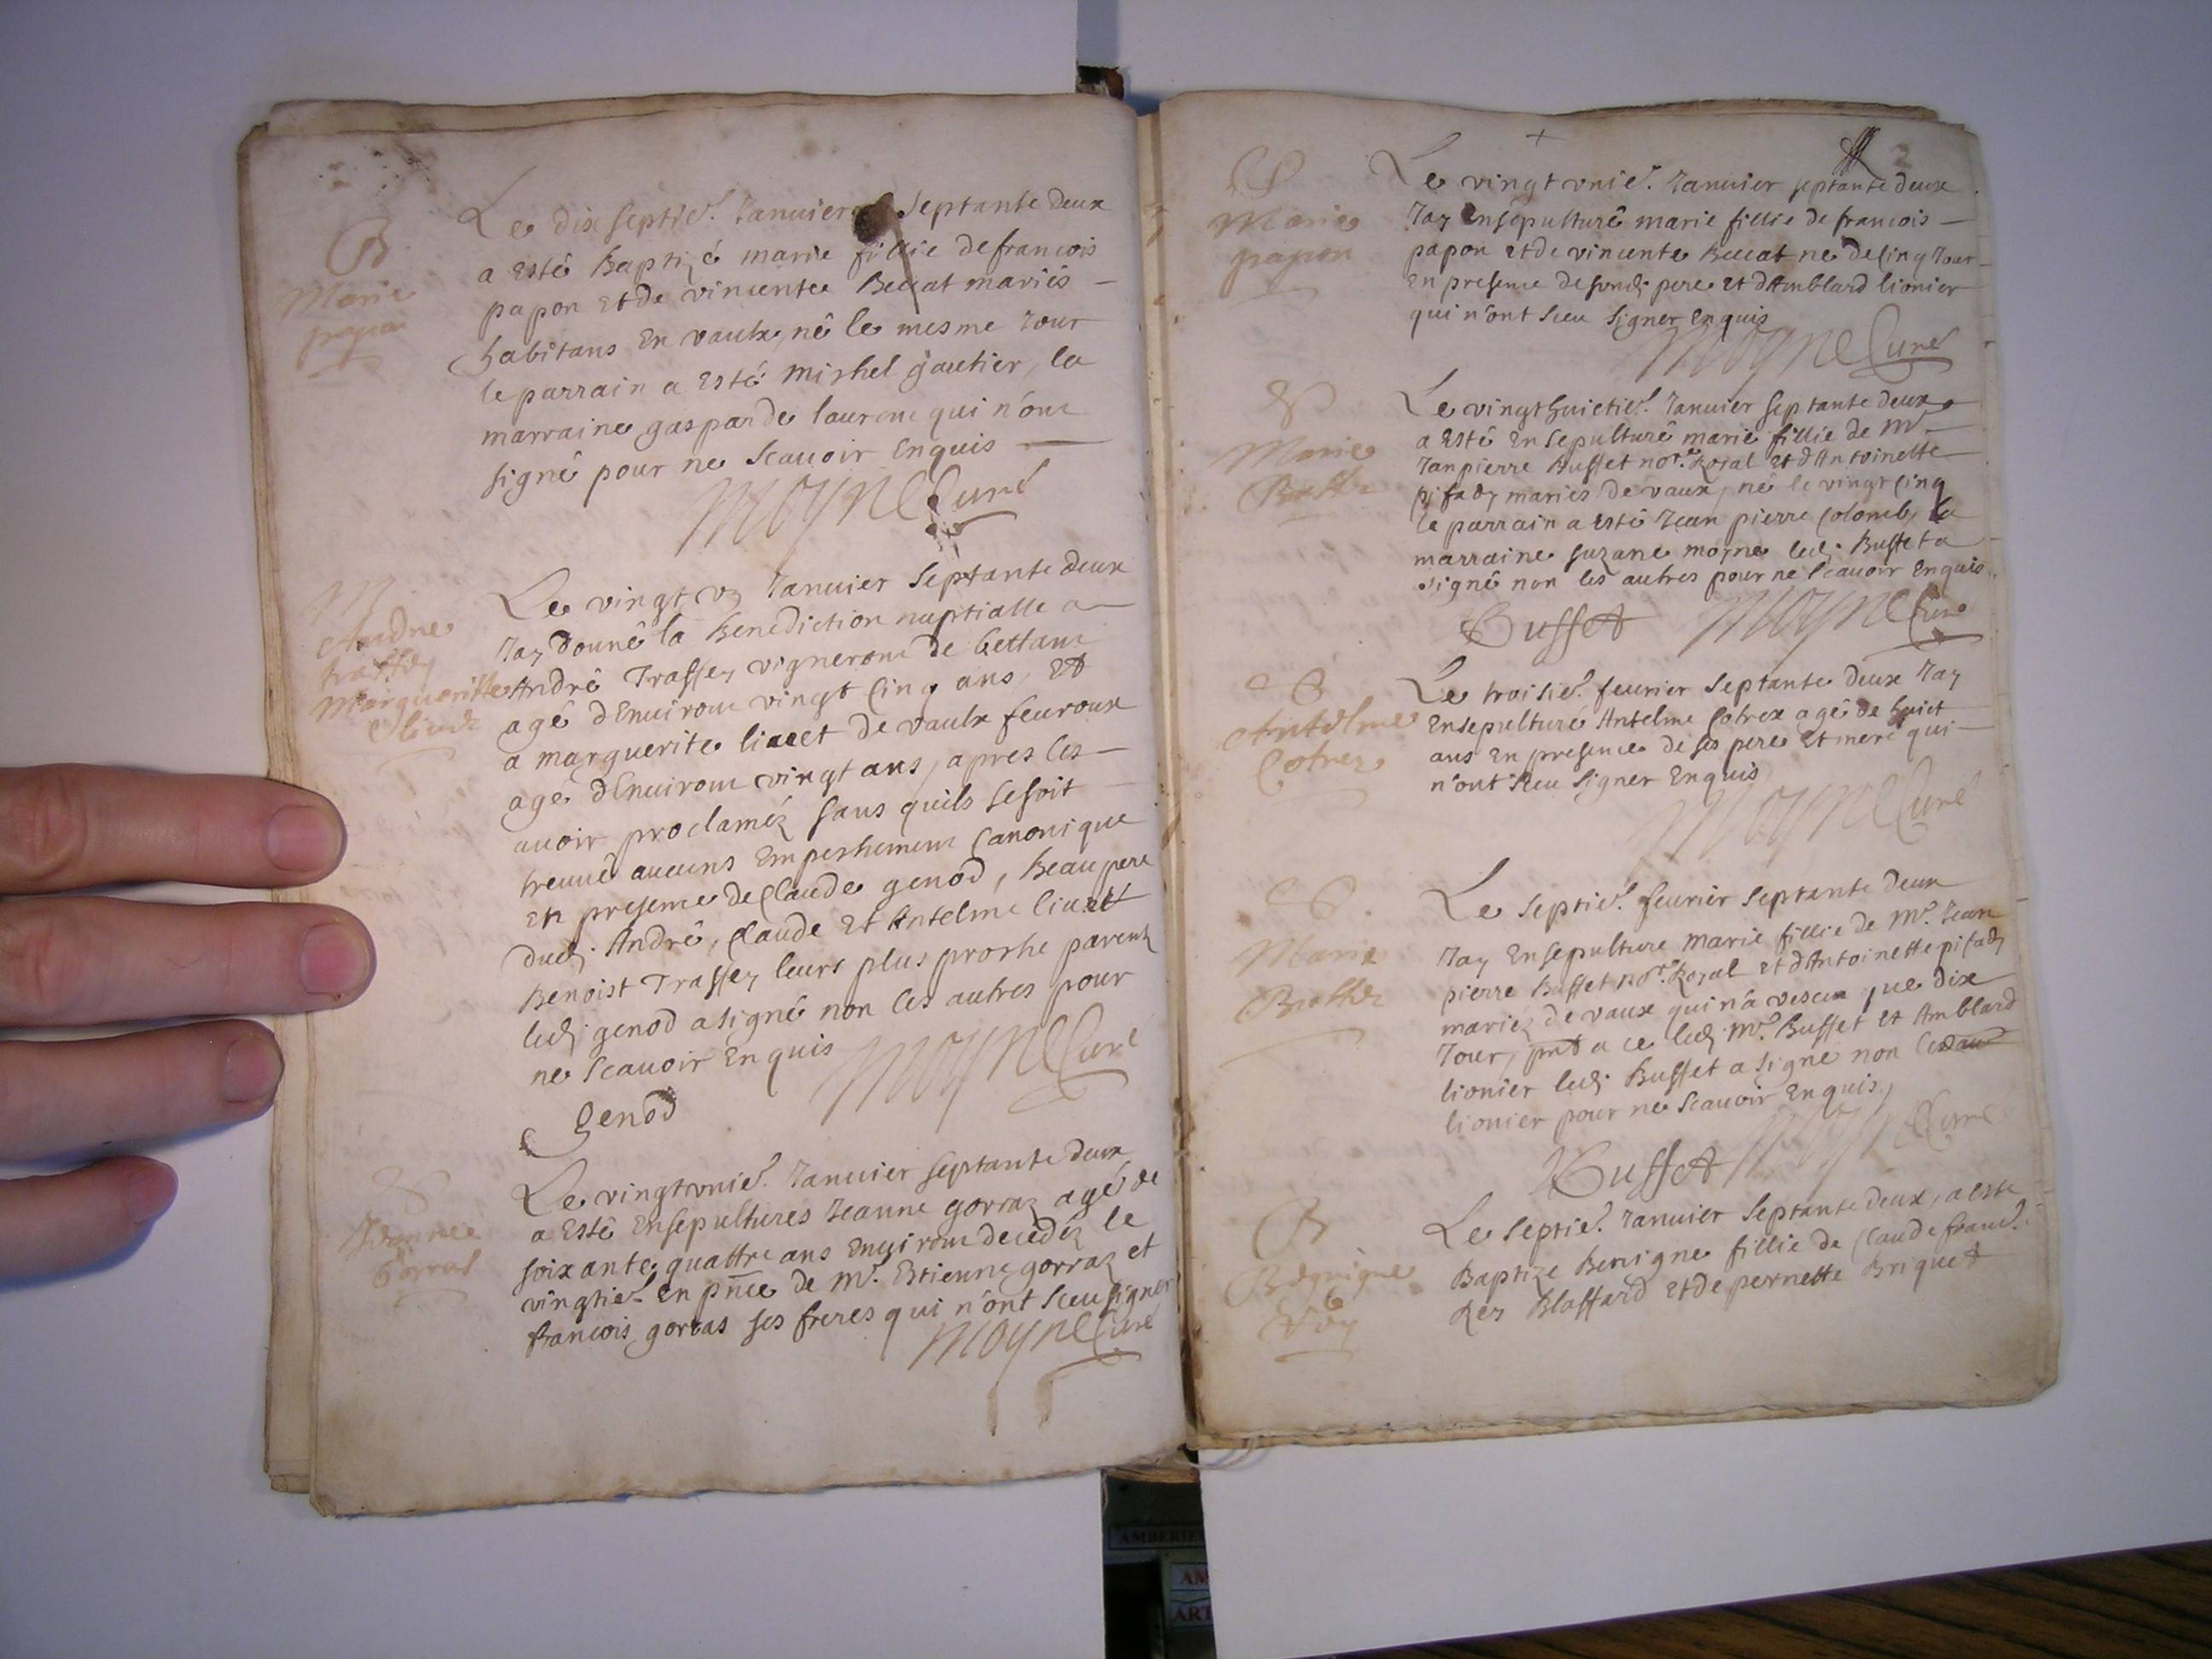 B
Marie
papon
Le dix septie.^e Januier septante deux
a esté Baptizé marie fillie de francois
papon et de vincente Beccat mariés
habitans en vaulx, né le mesme Jour
le parrain a esté mishel gautier, la
marraine gasparde laurenc qui n'ont
signé pour ne scauoir enquis
Moyne Curé
M
Andre
traffey
Marguerite
liuet
Le vingt vn Januier septante deux
Jay donné la Benediction nuptialle a
André Traffey vigneronc de bettanc
agé d'Enuironc vingt cinq ans, et
a marguerite liuet de vaulx feuroux
agé d'Enuironc vingt ans, apres les
auoir proclaméz sans quils se soit
treuué aucuns Empeshement canonique
en presence de Claude genod, Beaupere
dud. André, Claude et Antelme liuet
Benoist Traffey leurs plus proshe parentz
led. genod a signé non les autres pour
ne scauoir enquis
Moyne Curé
genod
S
Jeanne
Gorras
Le vingtvnie.^e Januier septante deux
a esté ensepultures Jeanne gorraz agé de
soixante quattre ans enuironc decedéz le
vingtie.^e en pnce de M.^r Estienne gorraz et
francois gorras ses freres qui n'ont sceu signer
Moyne Curé
2
S
Marie
papon
Le vingtvnie.^e Januier septante deux
Jay ensepulturé marie fillie de francois
papon et de vincente Beccat né de cinq Jour
en presence de sond. pere et d'Amblard lionier
qui n'ont sceu signer enquis
Moyne Curé
Marie
Le vingthuictie.^e Januier septante deux
a esté ensepulturé marie fillie de M.^r
Janpierre Buffet not.^re Royal et d'Antoinette
pisady mariés de vaux, né le vingt cinq
le parrain a esté Jean pierre Colomb, la
marraine suzane moyne led. Buffet a
signé non les autres pour ne scauoir enquis
Buffet Moyne Curé
S
Antelme
Cotrex
Le troisie.^e feurier septante deux Jay
ensepulturé Antelme Cotrex agé de huict
ans en presence de ses pere et mere qui
n'ont sceu signer enquis
Moyne Curé
S
Marie
Le septie.^e feurier septante deux
Jay ensepulture marie fillie de M.^r Jean
pierre Buffet not.^re Royal et d'Antoinette pisady
mariéz de vaux qui n'a vescu que dix
Jour, pnt a ce led. M.^r Buffet et Amblard
lionier led. Buffet a signe non led
lionier pour ne scauoir enquis
Buffet Moyne Curé
B
Le septie.^e Januier septante deux, a este
Baptize Benigne fillie de Claude franc.^s
Rey Blaffard et de pernette Briquet
AMBERIEU
AM
ART